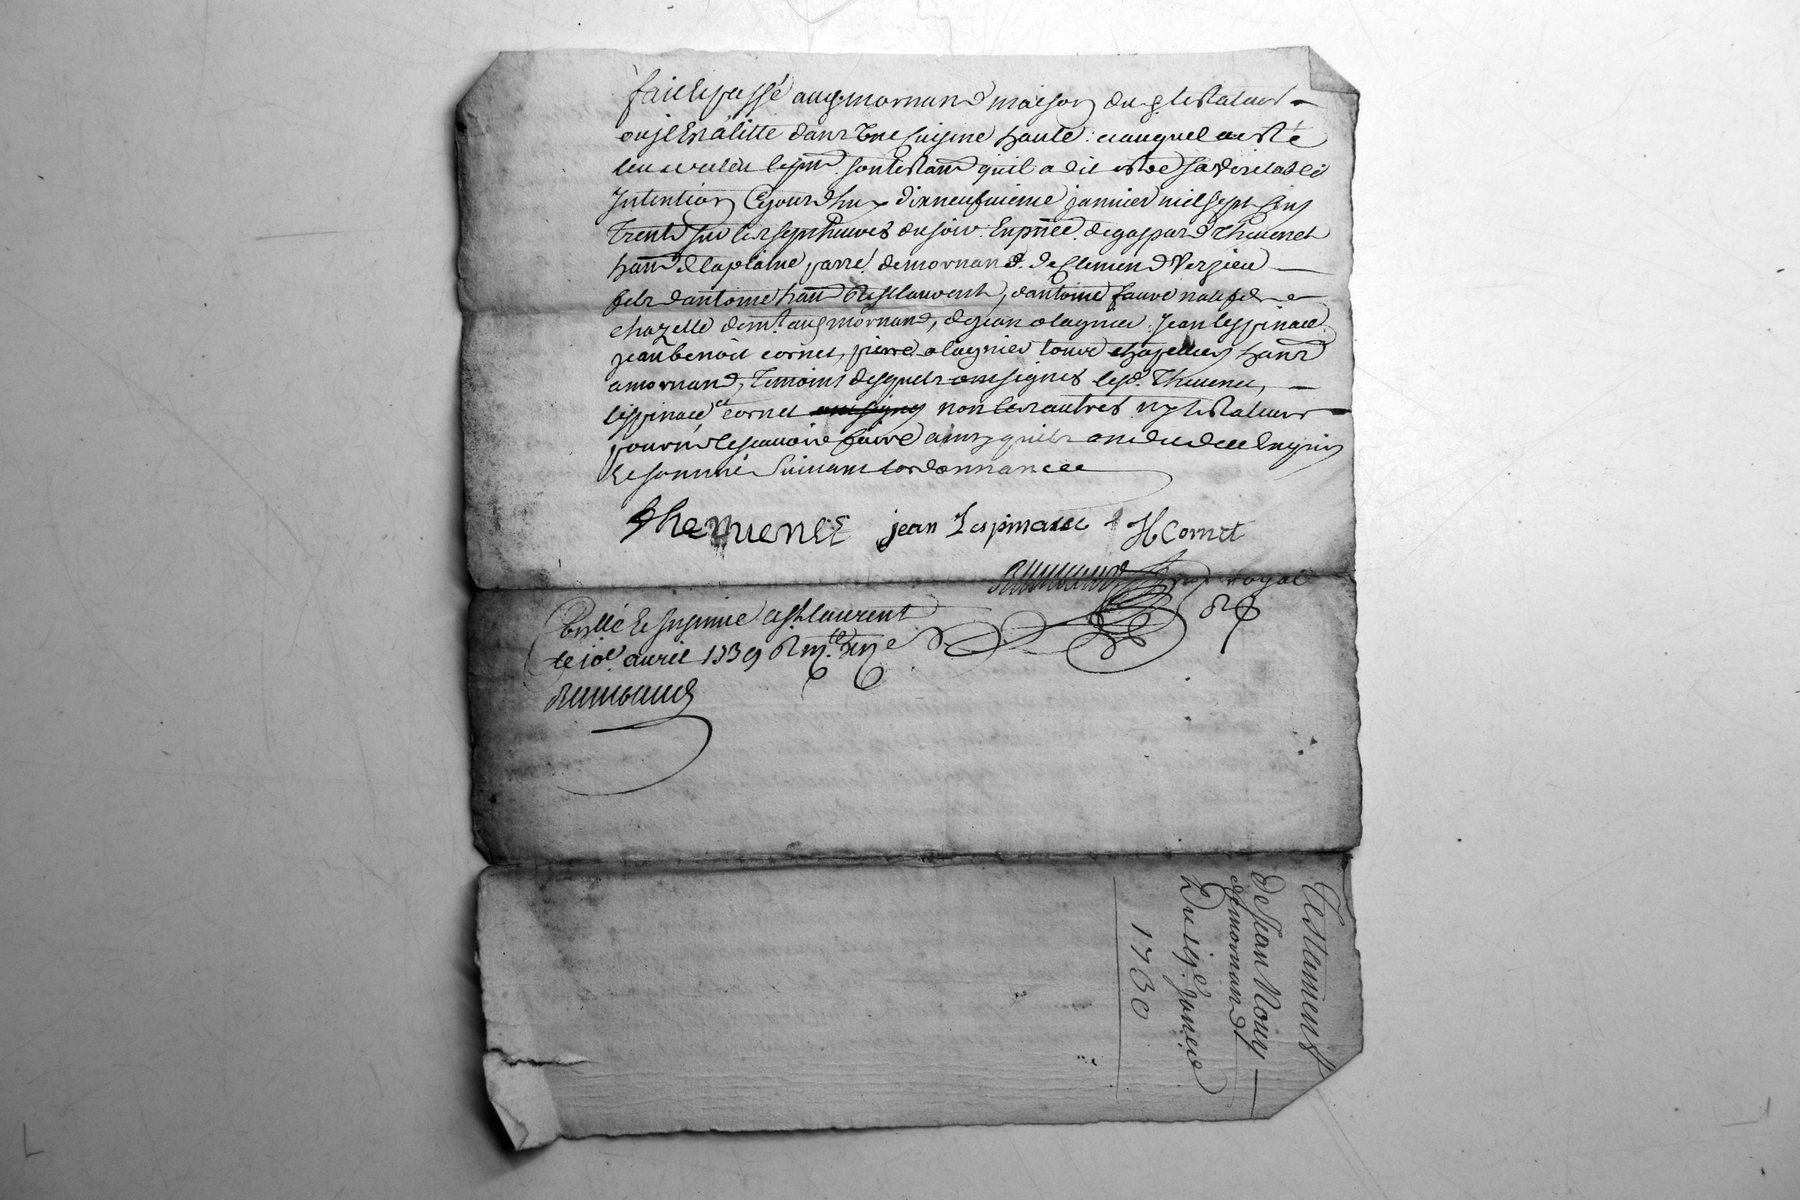 fait et passé aud. mornand maison dud. testateur
ou il est alitté dans une cuisine haute, auquel a esté
leu et releu le pnt. son testam qu'il a dit estre sa veritable
Intention Cejourdhuy dixneufuieme januier mil sept cens
trente sur les sept heures du soir. En pñce. de gaspard Theuenet
hant de la plaine, parr. de mornand. de Clemend Verzieu
fils dantoine hant St laurent, dantoine faure natif de
chazelle demt. aud mornand, de jean olagnier. jean lespinace
jean benoit cornet, pierre olagnier tous chapelliers hants
a mornand, temoins desquels ont signés lesd. Theuenet,
lespinace et cornet non les autres ny testateur
pour ne le scauoir faire ainsy quils ont dit de ce Enquis
et sommé suiuant lordonnance
theuenet jean Lespinasse H Cornet
royal
Collé et insinué a st laurent
le 10e auril 1739
Testament
de Jean Nouy
de mornand
Du 19e Janvie
1730